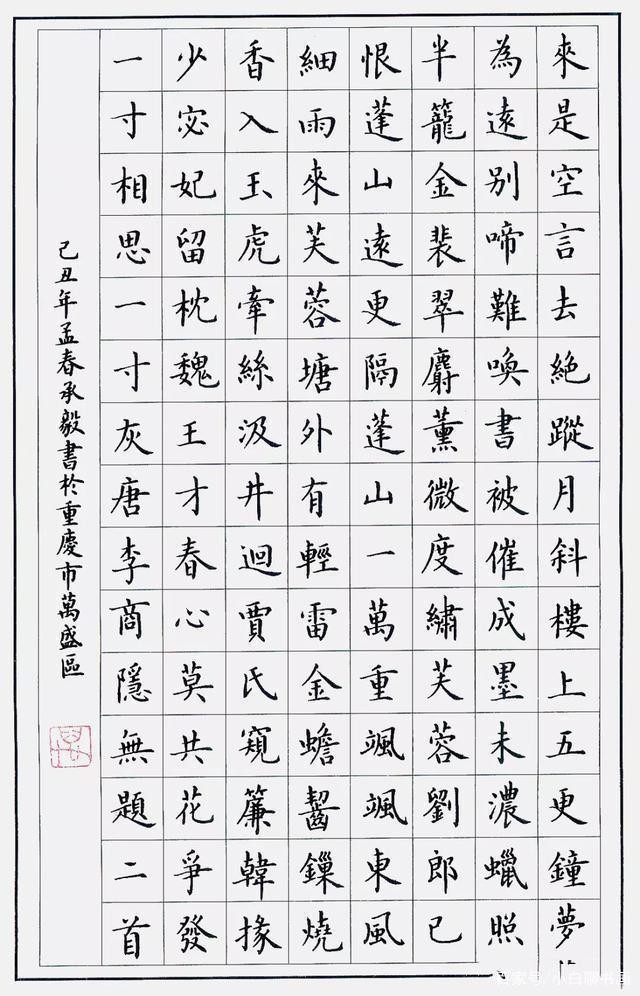 來是空言去絕蹤月斜樓上五更鐘夢
為遠別啼難喚書被催成墨未濃蠟照
半籠金裴翠麝薰微度繡芙蓉劉郎已
恨蓬山遠更隔蓬山一萬重颯颯東風
細雨來芙蓉塘外有輕雷金蟾齧鏁燒
香入玉虎牽絲汲井迴賈氏窺簾韓掾
少宓妃留枕魏王才春心莫共花爭發
一寸相思一寸灰唐李商隱無題二首
己丑年孟春承毅書於重慶市萬盛區
百家号/小白聊书画